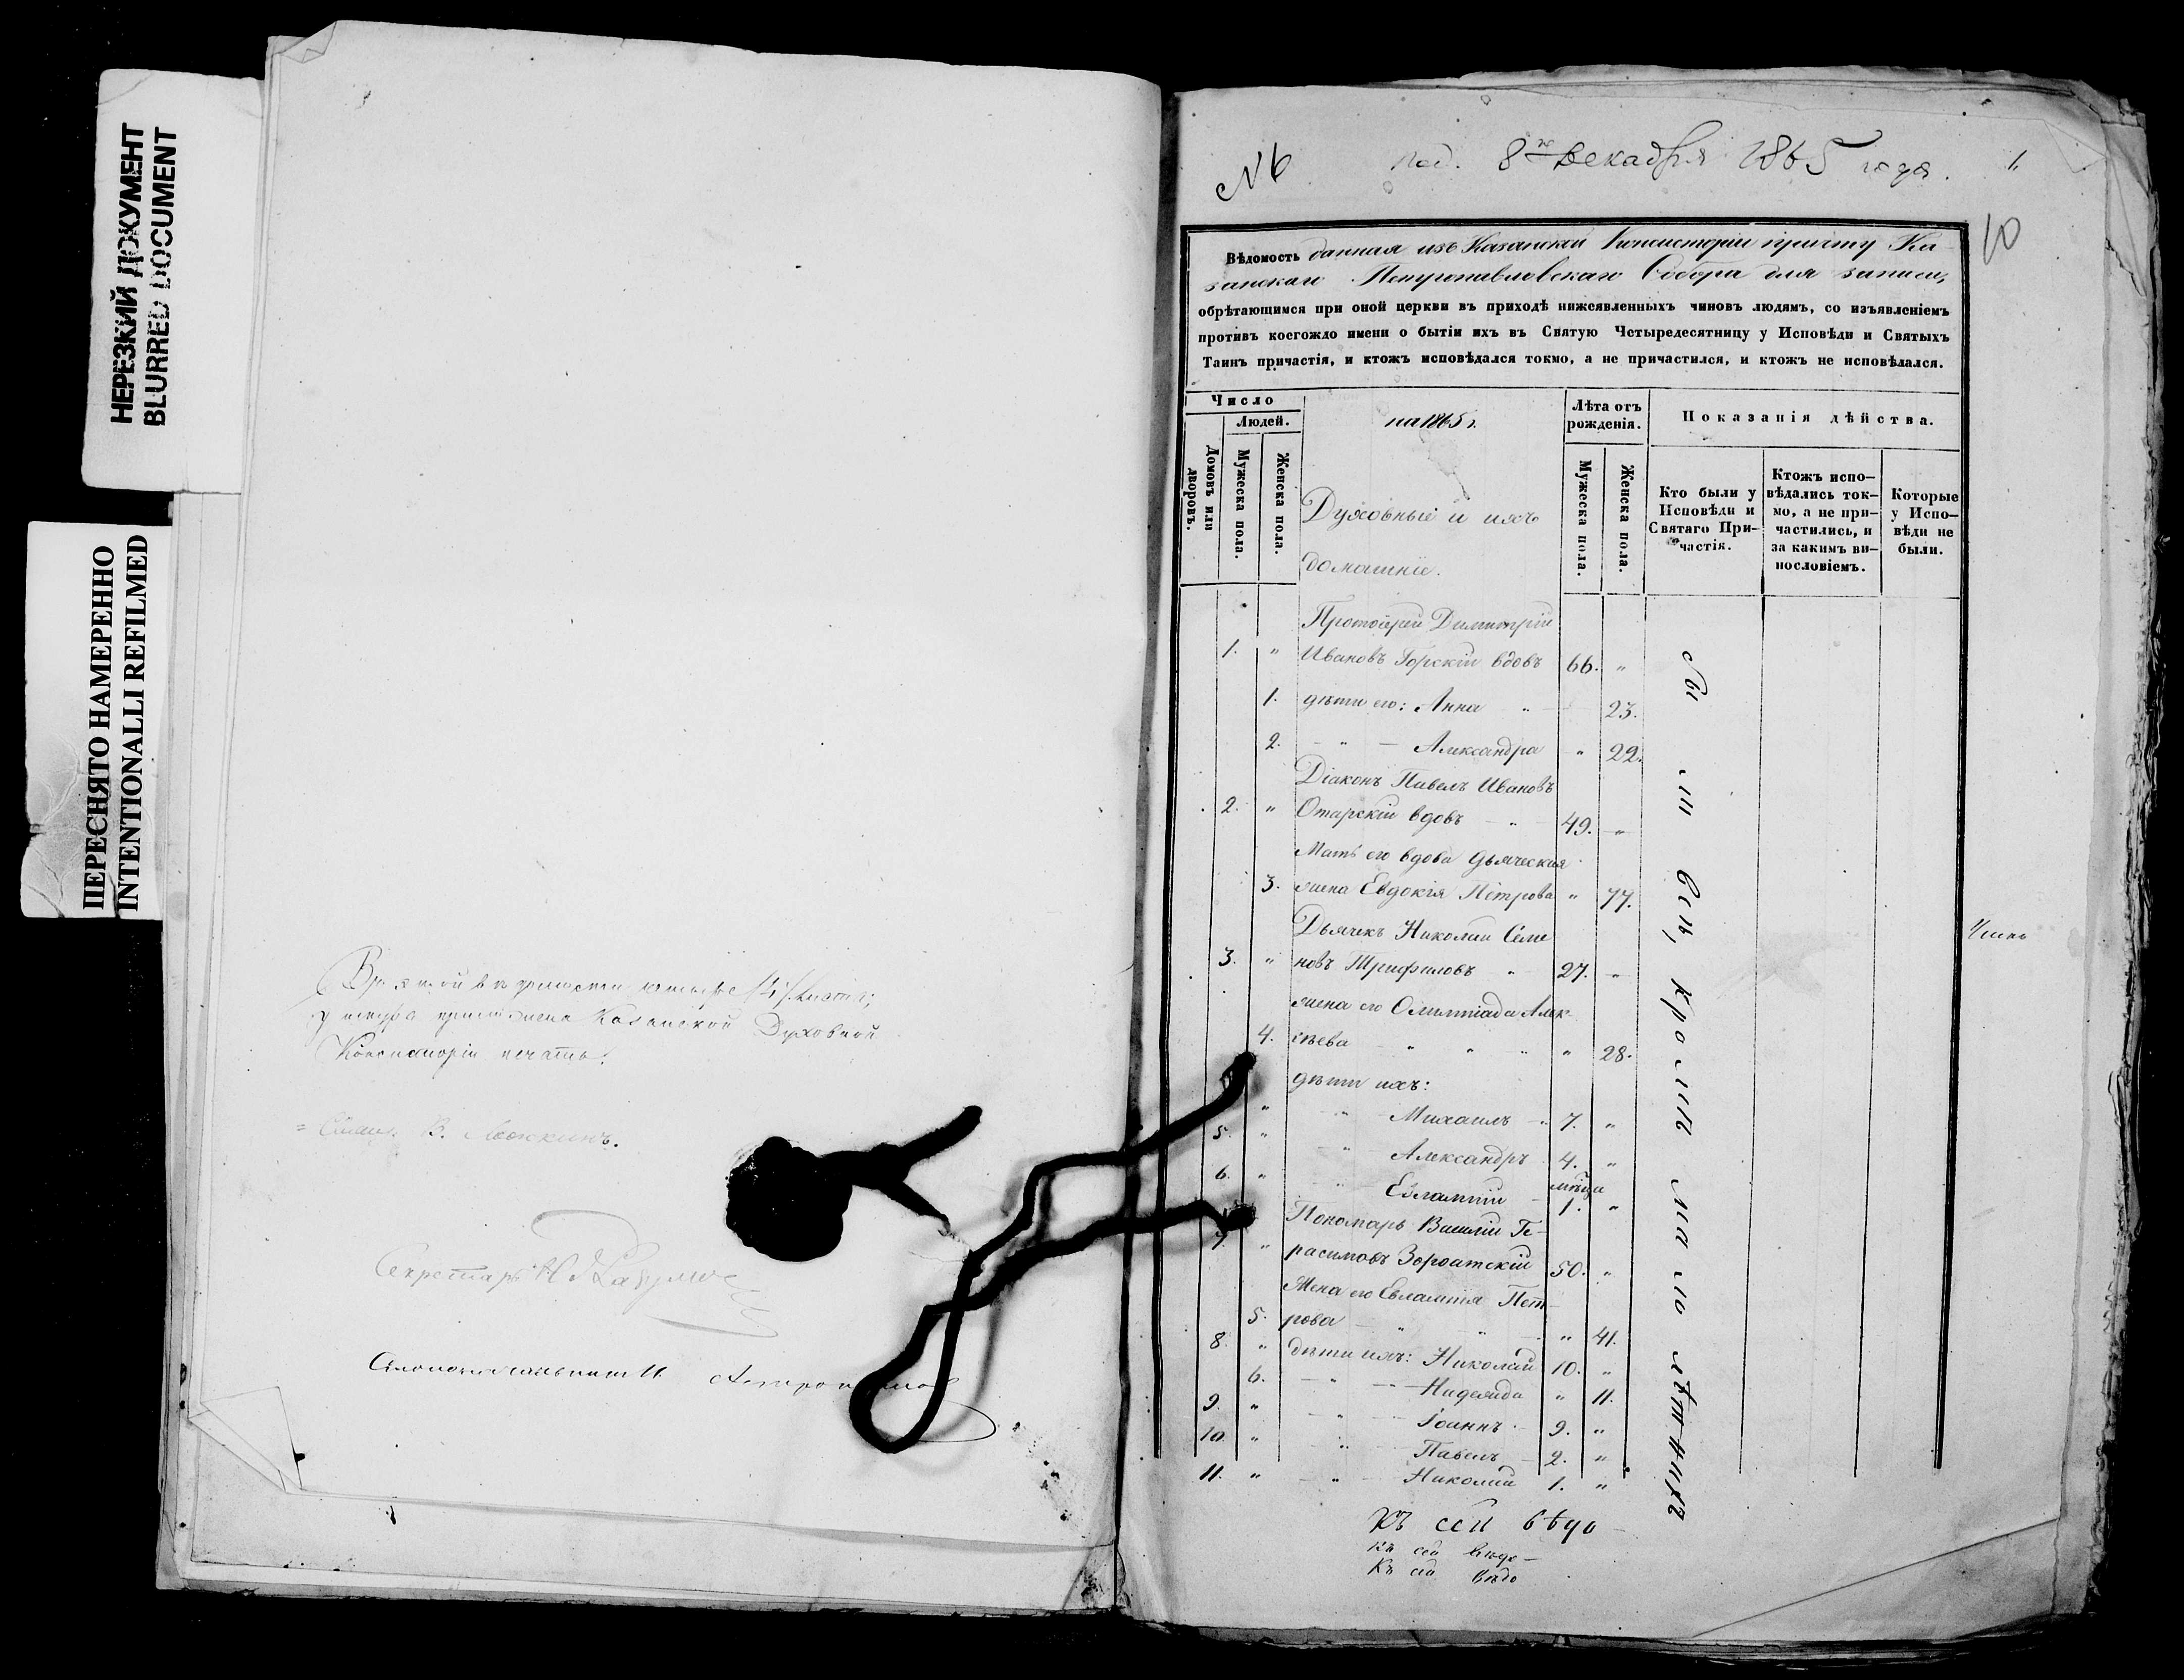 НЕРЕЗКИЙ ДОКУМЕНТ
BLURRED DOCUMENT
ПЕРЕСНЯТО НАМЕРЕННО
INTENTIONALLI REFILMED
Въ этой ведомости четыре /4/ листа;
у шнура приложена Казанской Духовной
Консисторіи печать.
Секретарь
Столоначальникъ
№6 под. 8го Декабря 1865 года.
1.
10
Вѣдомость данная изъ Казанской Консисторіи причту Ка-
занскаго Петропавловскаго Собора для записи,
обрѣтающимся при оной церкви въ приходѣ нижеявленныхъ чиновъ людямъ, со изъявленіемъ
противъ коегождо имени о бытіи ихъ въ Святую Четыредесятницу у Исповѣди и Святыхъ
Таинъ причастія, и ктожъ исповѣдался токмо, а не причастился, и ктожъ не исповѣдался.
Число
Людей.
Домовъ или дворовъ.
Мужеска пола.
Женска пола.
на 1865 г.
Духовные и ихъ
домашніе.
Лѣта отъ рожденія.
Мужеска пола.
Женска пола.
Показанія дѣйства.
Кто были у Исповѣди и Святаго При-
частія.
Ктожъ испо-
вѣдались ток-
мо, а не при-
частились, и
за какимъ ви-
нословіемъ.
Которые
у Испо-
вѣди не
были.
Протоіерей Димитрій
1. " Ивановъ Горскій вдовъ 66. "
1. дѣти его: Анна " 23.
2. " Александра " 22.
Діаконъ Павелъ Ивановъ
2. " Отарскій вдовъ " 49. "
Мать его вдова дьяческая
3. жена Евдокія Петрова " 77.
Дьячекъ Николай Семе
3. " новъ Трифиловъ " 27. "
жена его Олимпіада Алек-
4. сѣева " " " " 28.
дѣти ихъ:
" " Михаилъ " 7. "
5. " " Александръ 4. "
мѣсяца
6. " " Евлампій 1. "
Пономарь Василій Ге-
7. " расимовъ 50. "
Жена его Евлампія Пет-
5. рова " " " 41.
8. " дѣти ихъ: Николай 10. "
6. " Надежда " 11.
9. " " Іоаннъ 9. "
10. " " Павелъ 2. "
11. " " Николай 1. "
Были всѣ, кромѣ малолѣтнихъ
Къ сей вѣдо-
Къ сей вѣдо-
Къ сей вѣдо